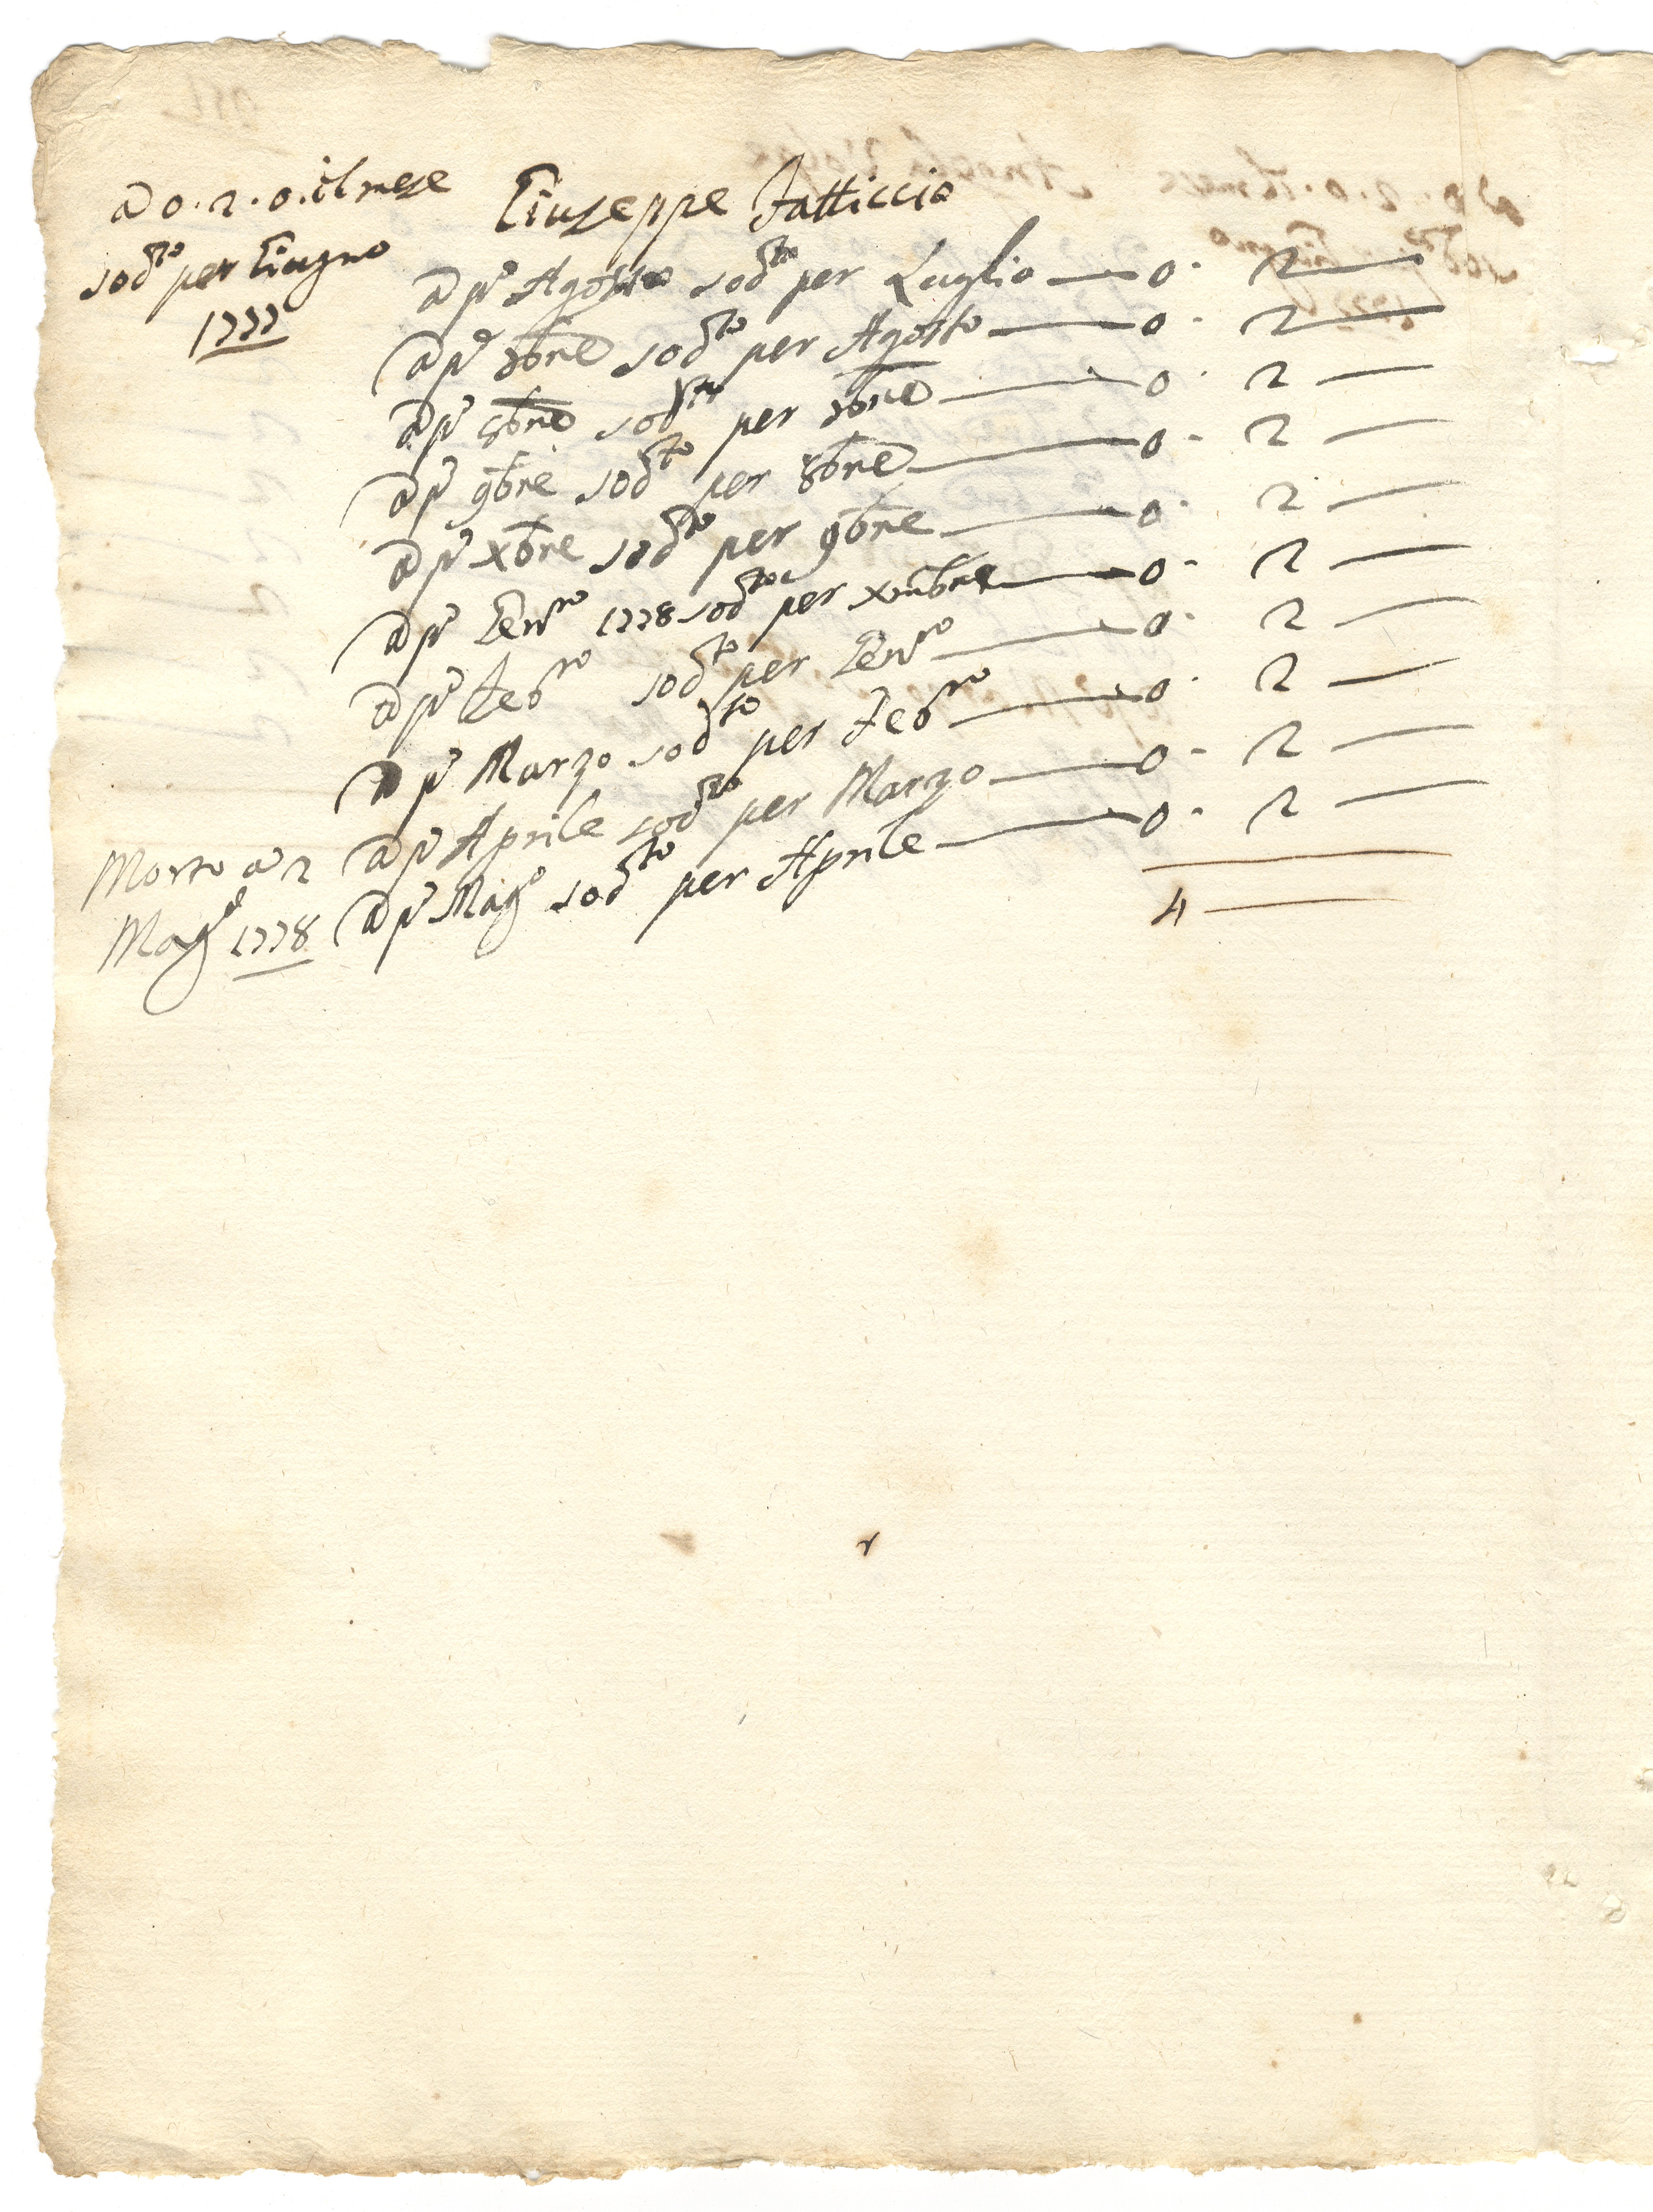 a 0.2.0. il mese
sodto per Giugno
1777
Giuseppe Fatticcio
a pº Agosto sodto per Luglio — 0. 2 —
a pº 7bre sodto per Agosto — 0. 2 —
a pº 8bre sodto per 7bre — 0. 2 —
a pº 9bre sodto per 8bre — 0. 2 —
a pº xbre sodto per 9bre — 0. 2 —
a pº Gennro 1778 sodto per xmbre — 0. 2 —
a pº Febro sodto per Gennro — 0. 2 —
a pº Marzo sodto per Febro — 0. 2 —
a pº Aprile sodto per Marzo — 0. 2 —
a pº Mago sodto per Aprile — 0. 2 —
4 —
Morto a 2
Mago 1778